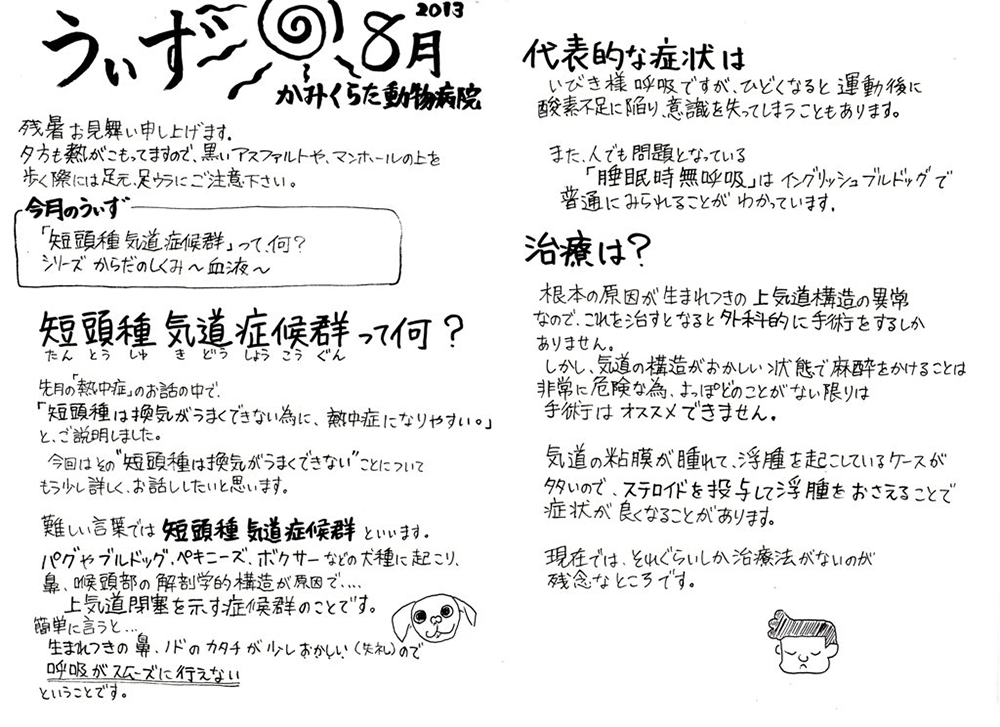 うぃず 8月
2013
かみくらた動物病院
残暑お見舞い申し上げます。
夕方も熱がこもってますので、黒いアスファルトや、マンホールの上を
歩く際には足元、足ウラにご注意下さい。
今月のうぃず
「短頭種気道症候群」って、何?
シリーズ からだのしくみ〜血液〜
短頭種 気道症候群って何?
たん とう しゅ き どう しょう こう ぐん
先月の「熱中症」のお話の中で、
「短頭種は換気がうまくできない為に、熱中症になりやすい。」
と、ご説明しました。
今回はその"短頭種は換気がうまくできない"ことについて
もう少し詳しく、お話ししたいと思います。
難しい言葉では 短頭種 気道症候群 といいます。
パグやブルドッグ、ペキニーズ、ボクサーなどの犬種に起こり、
鼻、喉頭部の解剖学的構造が原因で....
上気道閉塞を示す症候群のことです。
簡単に言うと...
生まれつきの鼻、ノドのカタチが少しおかしい(失礼)ので
呼吸がスムーズに行えない
ということです。
代表的な症状は
いびき様呼吸ですが、ひどくなると運動後に
酸素不足に陥り、意識を失ってしまうこともあります。
また、人でも問題となっている
「睡眠時無呼吸」はイングリッシュブルドッグで
普通にみられることがわかっています。
治療は?
根本の原因が生まれつきの上気道構造の異常
なので、これを治すとなると外科的に手術をするしか
ありません。
しかし、気道の構造がおかしい状態で麻酔をかけることは
非常に危険な為、よっぽどのことがない限りは
手術はオススメできません。
気道の粘膜が腫れて、浮腫を起こしているケースが
多いので、ステロイドを投与して浮腫をおさえることで
症状が良くなることがあります。
現在では、それぐらいしか治療法がないのが
残念なところです。